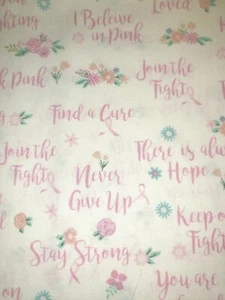 on
Fighting
I Beleive
in Pink
Loved
on Pink
Join the
Fight
Find a Cure
Join the
Fight
There is alw
Hope
Never
Give Up
Keep o
Fight
Stay Strong
You are